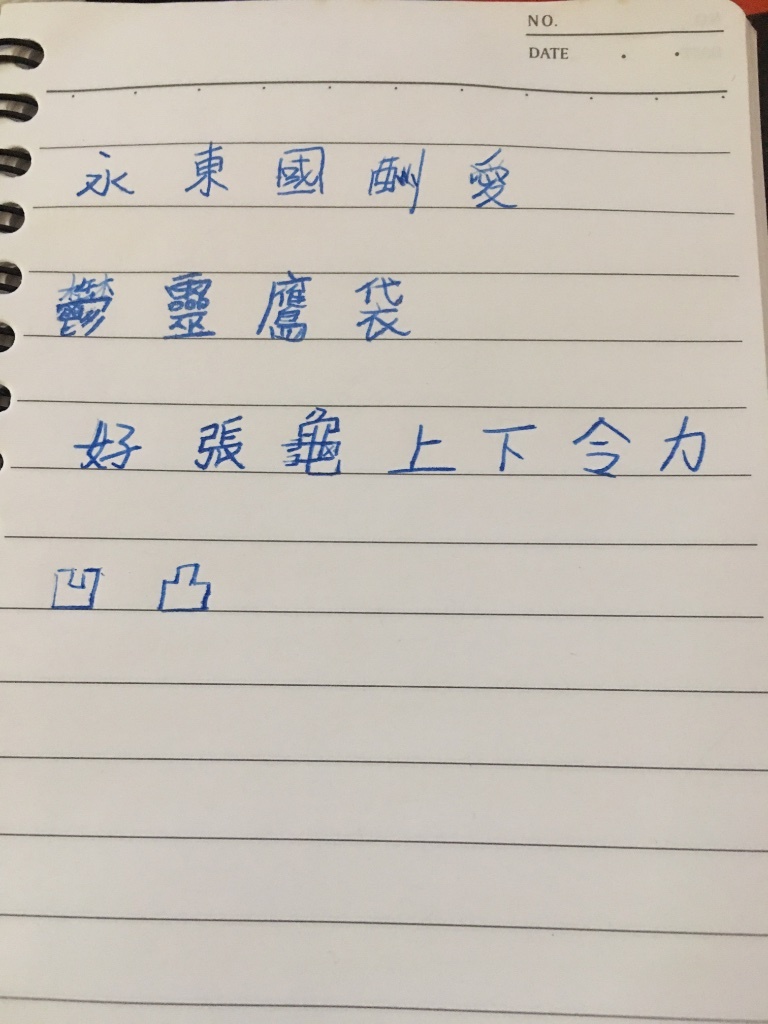 NO.
DATE . .
永 東 國 酬 愛
鬱 靈 鷹 袋
好 張 龜 上 下 令 力
凹 凸